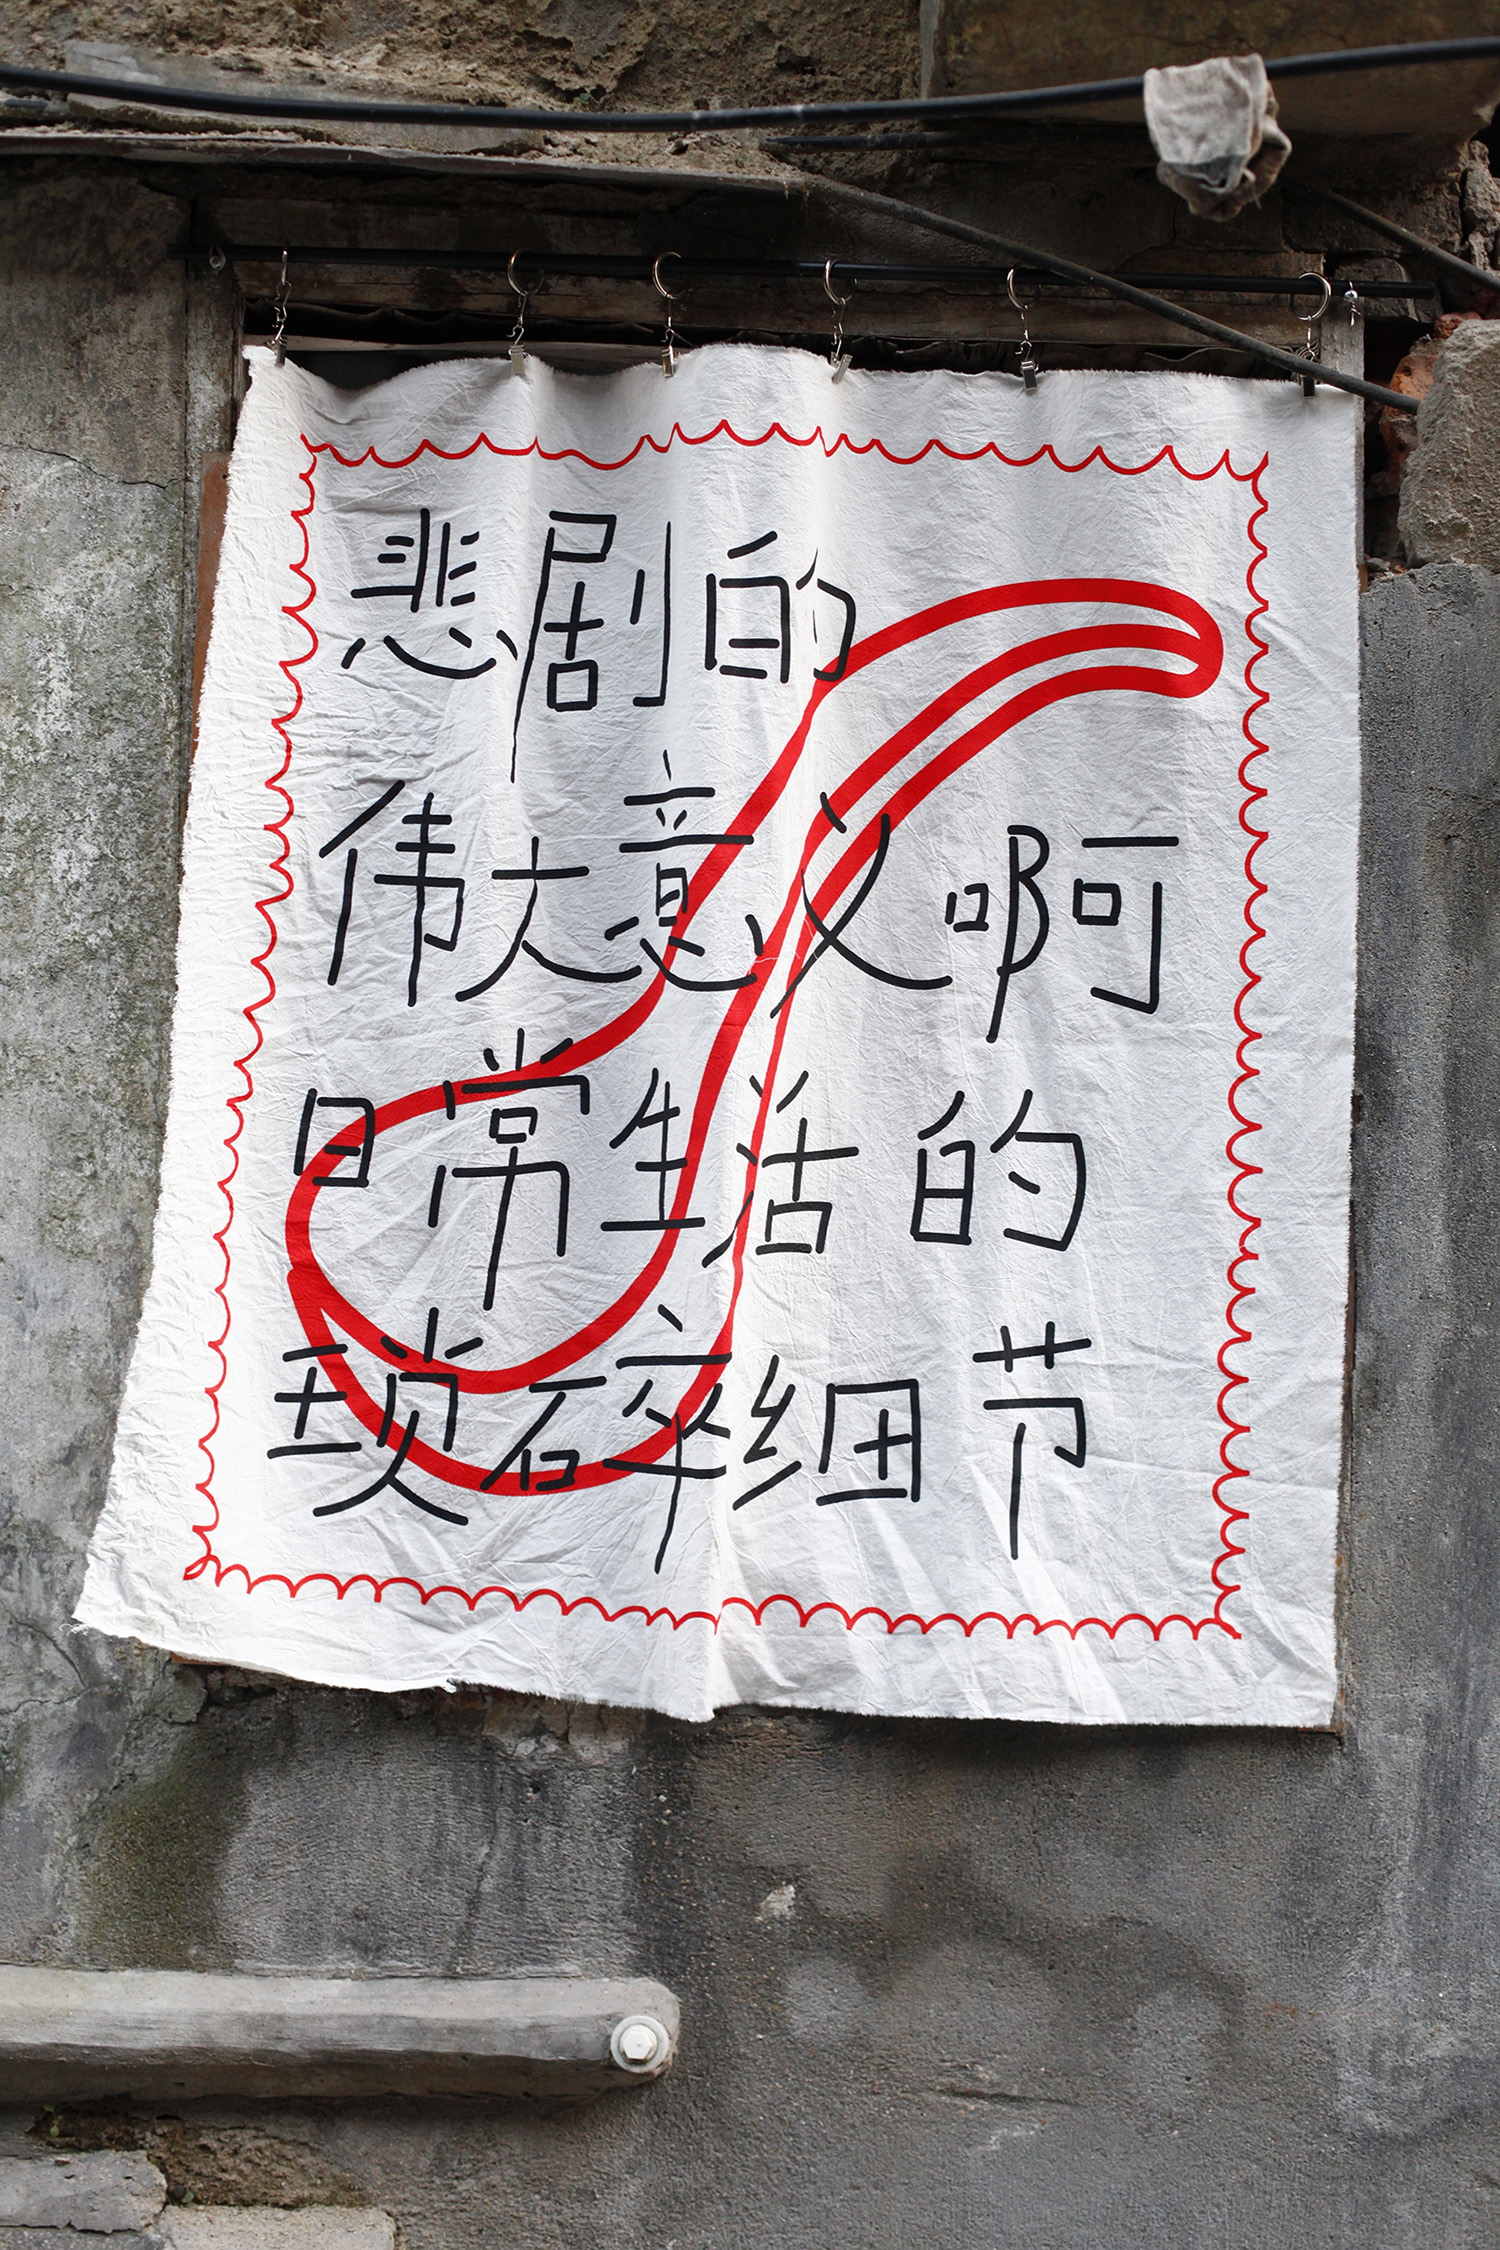 悲剧的
伟大意义啊
日常生活的
琐碎细节